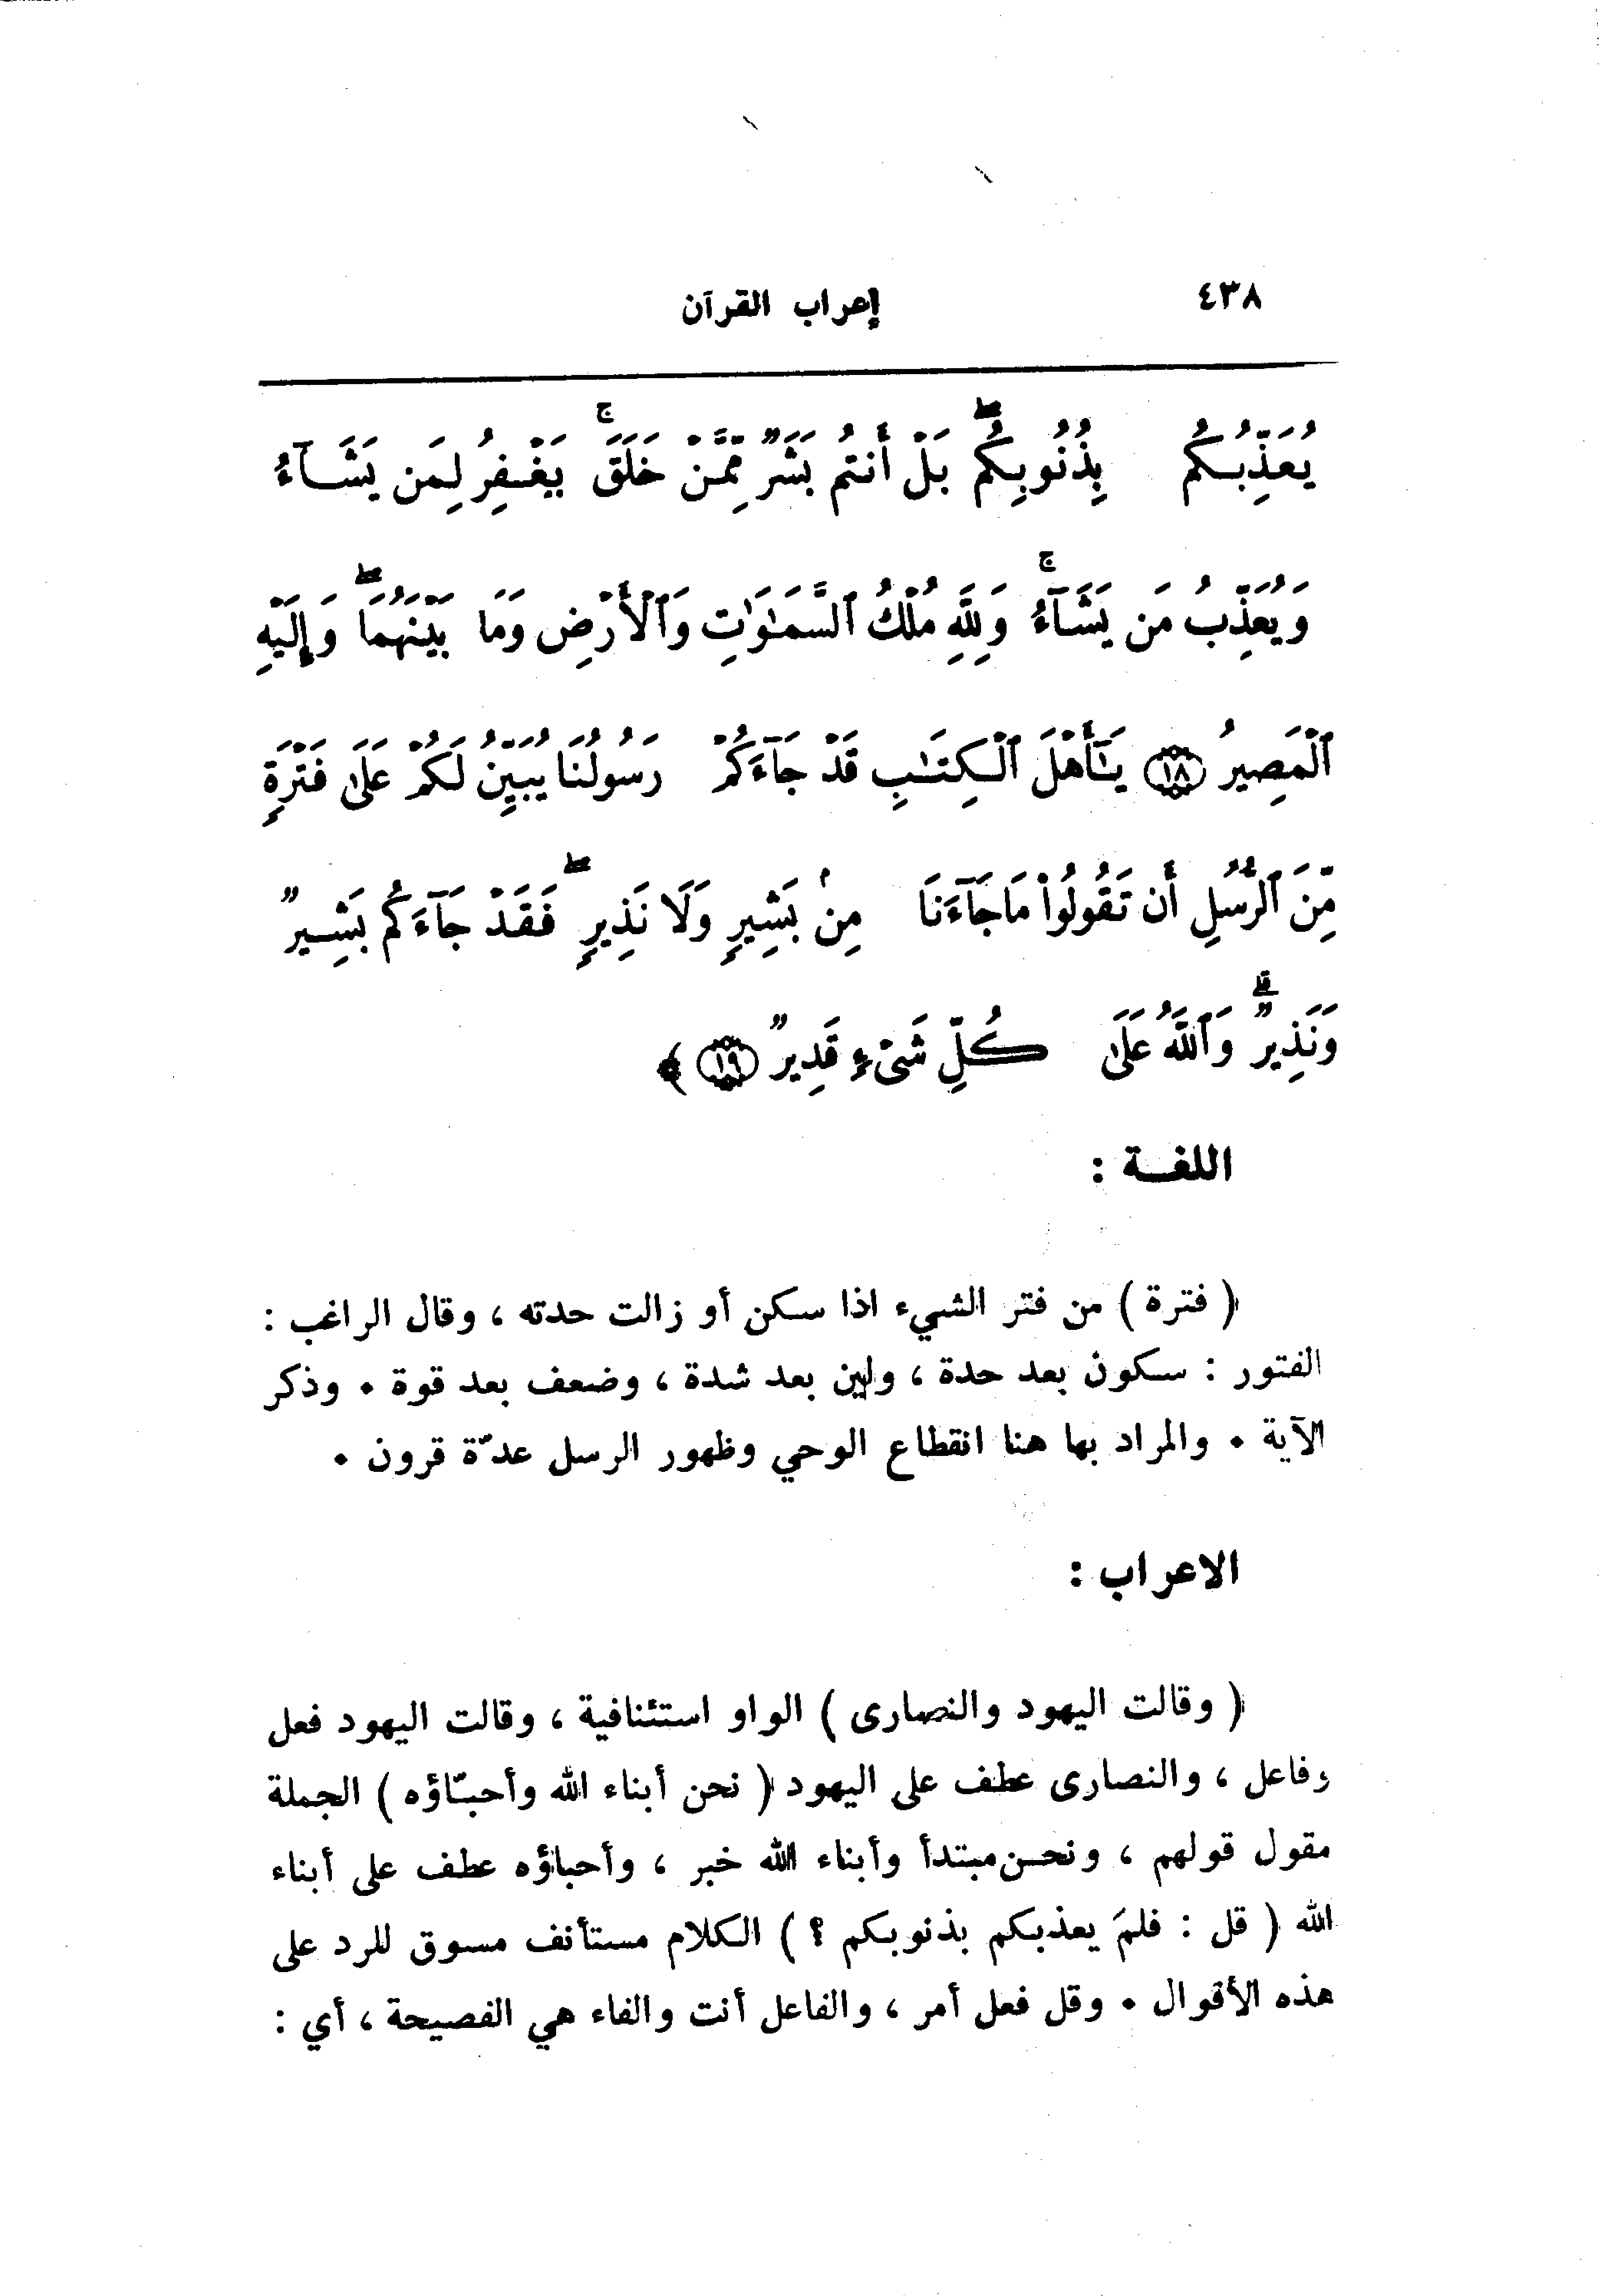 ٤٣٨ إعراب القرآن
يُعَذِّبُكُم بِذُنُوبِكُمۖ بَلْ أَنتُم بَشَرٌ مِّمَّنْ خَلَقَۚ يَغْفِرُ لِمَن يَشَآءُ
وَيُعَذِّبُ مَن يَشَآءُۚ وَلِلَّهِ مُلْكُ ٱلسَّمَٰوَٰتِ وَٱلْأَرْضِ وَمَا بَيْنَهُمَاۖ وَإِلَيْهِ
ٱلْمَصِيرُ ١٨ يَٰٓأَهْلَ ٱلْكِتَٰبِ قَدْ جَآءَكُمْ رَسُولُنَا يُبَيِّنُ لَكُمْ عَلَىٰ فَتْرَةٍ
مِّنَ ٱلرُّسُلِ أَن تَقُولُوا۟ مَا جَآءَنَا مِنۢ بَشِيرٍ وَلَا نَذِيرٍۖ فَقَدْ جَآءَكُم بَشِيرٌ
وَنَذِيرٌۗ وَٱللَّهُ عَلَىٰ كُلِّ شَىْءٍ قَدِيرٌ ١٩ ﴾
اللغـة :
( فترة ) من فتر الشيء اذا سكن أو زالت حدته ، وقال الراغب :
الفتور : سكون بعد حدة ، ولين بعد شدة ، وضعف بعد قوة ٠ وذكر
الآية ٠ والمراد بها هنا انقطاع الوحي وظهور الرسل عدّة قرون ٠
الاعراب :
( وقالت اليهود والنصارى ) الواو استئنافية ، وقالت اليهود فعل
وفاعل ، والنصارى عطف على اليهود ( نحن أبناء الله وأحبّاؤه ) الجملة
مقول قولهم ، ونحن مبتدأ وأبناء الله خبر ، وأحباؤه عطف على أبناء
الله ( قل : فلمَ يعذبكم بذنوبكم ؟ ) الكلام مستأنف مسوق للرد على
هذه الأقوال ٠ وقل فعل أمر ، والفاعل أنت والفاء هي الفصيحة ، أي :